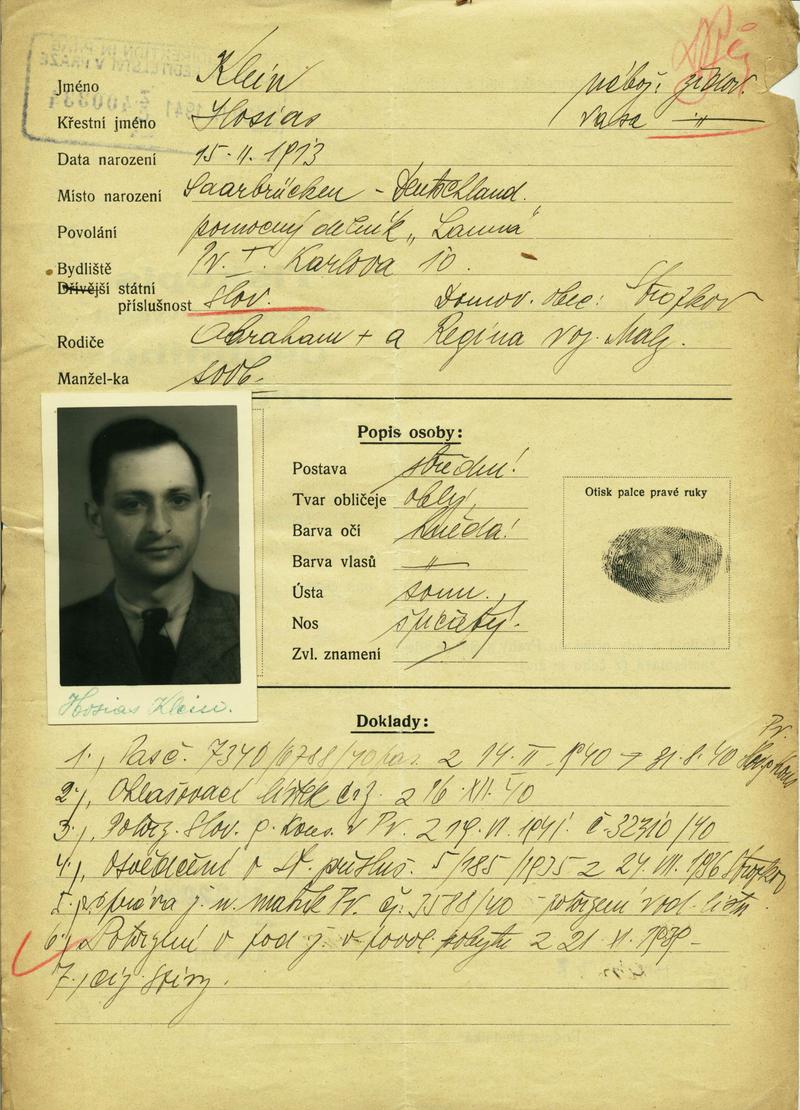 Jméno Klein nábož. židov.
Křestní jméno Hosias rasa –"–
Data narození 15. II. 1913
Místo narození Saarbrücken - Deutschland.
Povolání pomocný dělník „Lanna"
Bydliště Pr. I. Karlova 10.
Dřívější státní
příslušnost slov. Domov. obec: Stropkov
Rodiče Abraham + a Regina roz. Malz.
Manžel-ka svob.
Popis osoby:
Postava střední
Tvar obličeje oblý,
Barva očí hnědá
Otisk palce pravé ruky
Barva vlasů –"–
Ústa soum.
Nos špičatý.
Zvl. znamení
Hosias Klein.
Doklady:
1., Pas č. 7340/6788/40 z 14. II. 1940 31. 8. 40
2., Ohlašovací lístek z 16. XII. 40
3., Potvrz. slov. g. kons. v Pr. z 19. VI. 1941. č. 32310/40
4., Osvědčení o st. přísluš. 5/185/1935 z 24. VII. 1936 Stropkov
5. zpráva ž. n. matrik Pr. čj. 3588/40 - potvrzení rod. listu
6., Potvrzení o pod. ž. o povol. pobytu z 21. XI. 1939 -
7.,